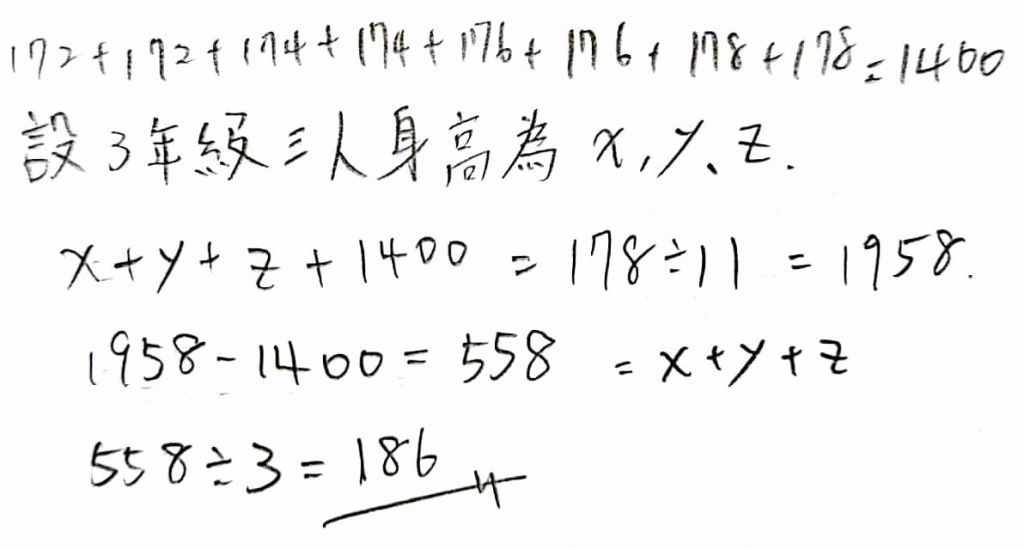 172+172+174+174+176+176+178+178=1400
設3年級三人身高為 x,y、z.
x+y+z+1400 = 178÷11 = 1958.
1958-1400 = 558 = x+y+z
558÷3 = 186